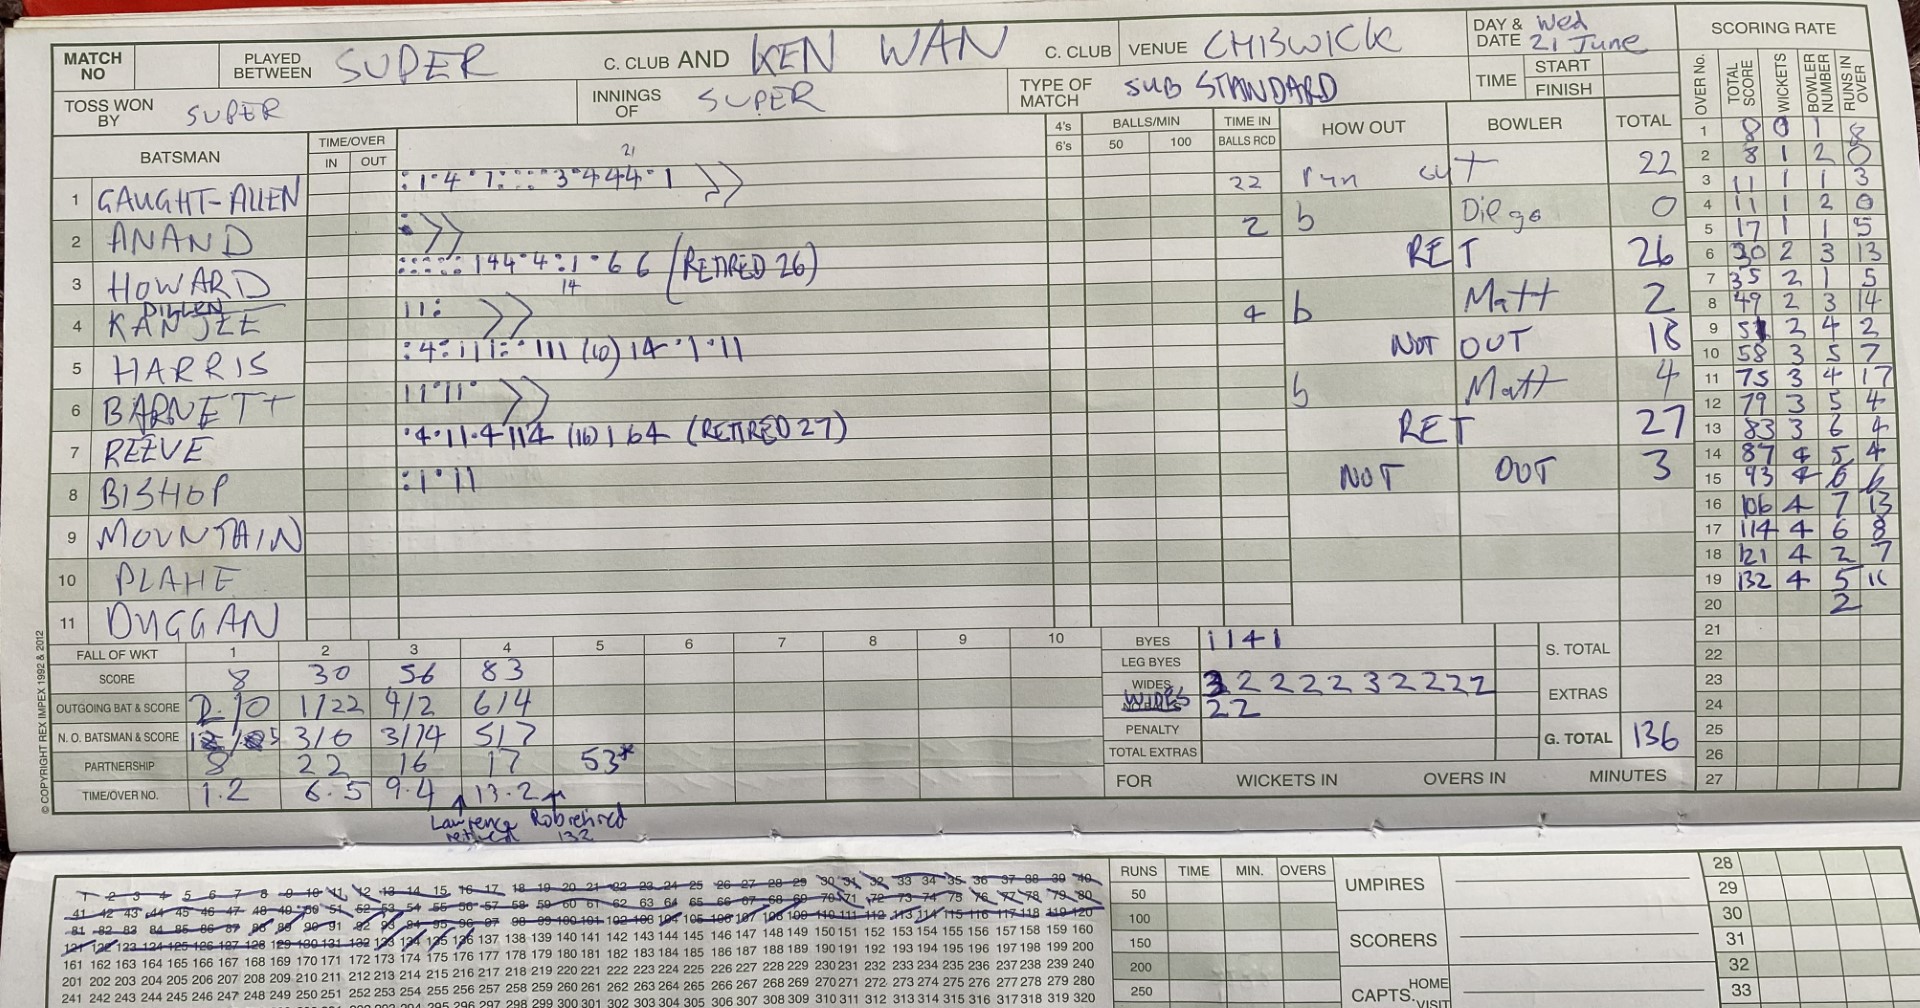 MATCH NO PLAYED BETWEEN SUPER C. CLUB AND KEN WAN C. CLUB VENUE CHISWICK DAY & DATE Wed 21 June
TOSS WON BY SUPER INNINGS OF SUPER TYPE OF MATCH SUB STANDARD TIME START FINISH
BATSMAN TIME/OVER IN OUT 4's 6's BALLS/MIN 50 100 TIME IN BALLS RCD HOW OUT BOWLER TOTAL
1 GAUGHT-ALLEN 21 22 run out 22
2 ANAND 2 b Diego 0
3 HOWARD 144·4:1·66 (RETIRED 26) 14 RET 26
4 DILLEN KANJEE 11: 4 b Matt 2
5 HARRIS :4:111:·111 (10) 14·1·11 NOT OUT 18
6 BARNETT 11·11· b Matt 4
7 REEVE ·4·11·4114 (16) 164 (RETIRED 27) RET 27
8 BISHOP :1·11 NOT OUT 3
9 MOUNTAIN
10 PLAHE
11 DUGGAN
FALL OF WKT 1 2 3 4 5 6 7 8 9 10
SCORE 8 30 56 83
OUTGOING BAT & SCORE 2/0 1/22 4/2 6/4
N. O. BATSMAN & SCORE 3/6 3/14 5/7
PARTNERSHIP 8 22 16 17 53*
TIME/OVER NO. 1.2 6.5 9.4 13.2
Lawrence retired Rob retired 132
BYES 1141
LEG BYES
WIDES 3 2 2 2 2 2 3 2 2 2 2
WIDES 2 2
PENALTY
TOTAL EXTRAS
S. TOTAL
EXTRAS
G. TOTAL 136
FOR WICKETS IN OVERS IN MINUTES
SCORING RATE
OVER No. TOTAL SCORE WICKETS BOWLER NUMBER RUNS IN OVER
1 8 0 1 8
2 8 1 2 0
3 11 1 1 3
4 11 1 2 0
5 17 1 1 5
6 30 2 3 13
7 35 2 1 5
8 49 2 3 14
9 51 2 4 2
10 58 3 5 7
11 75 3 4 17
12 79 3 5 4
13 83 3 6 4
14 87 4 5 4
15 93 4 6 6
16 106 4 7 13
17 114 4 6 8
18 121 4 2 7
19 132 4 5 11
20 2
21
22
23
24
25
26
27
© COPYRIGHT REX IMPEX 1992 & 2012
1 2 3 4 5 6 7 8 9 10 11 12 13 14 15 16 17 18 19 20 21 22 23 24 25 26 27 28 29 30 31 32 33 34 35 36 37 38 39 40
41 42 43 44 45 46 47 48 49 50 51 52 53 54 55 56 57 58 59 60 61 62 63 64 65 66 67 68 69 70 71 72 73 74 75 76 77 78 79 80
81 82 83 84 85 86 87 88 89 90 91 92 93 94 95 96 97 98 99 100 101 102 103 104 105 106 107 108 109 110 111 112 113 114 115 116 117 118 119 120
121 122 123 124 125 126 127 128 129 130 131 132 133 134 135 136 137 138 139 140 141 142 143 144 145 146 147 148 149 150 151 152 153 154 155 156 157 158 159 160
161 162 163 164 165 166 167 168 169 170 171 172 173 174 175 176 177 178 179 180 181 182 183 184 185 186 187 188 189 190 191 192 193 194 195 196 197 198 199 200
201 202 203 204 205 206 207 208 209 210 211 212 213 214 215 216 217 218 219 220 221 222 223 224 225 226 227 228 229 230 231 232 233 234 235 236 237 238 239 240
241 242 243 244 245 246 247 248 249 250 251 252 253 254 255 256 257 258 259 260 261 262 263 264 265 266 267 268 269 270 271 272 273 274 275 276 277 278 279 280
295 296 297 298 299 300 301 302 303 304 305 306 307 308 309 310 311 312 313 314 315 316 317 318 319 320
RUNS TIME MIN. OVERS
50
100
150
200
250
UMPIRES
SCORERS
CAPTS. HOME VISIT
28
29
30
31
32
33